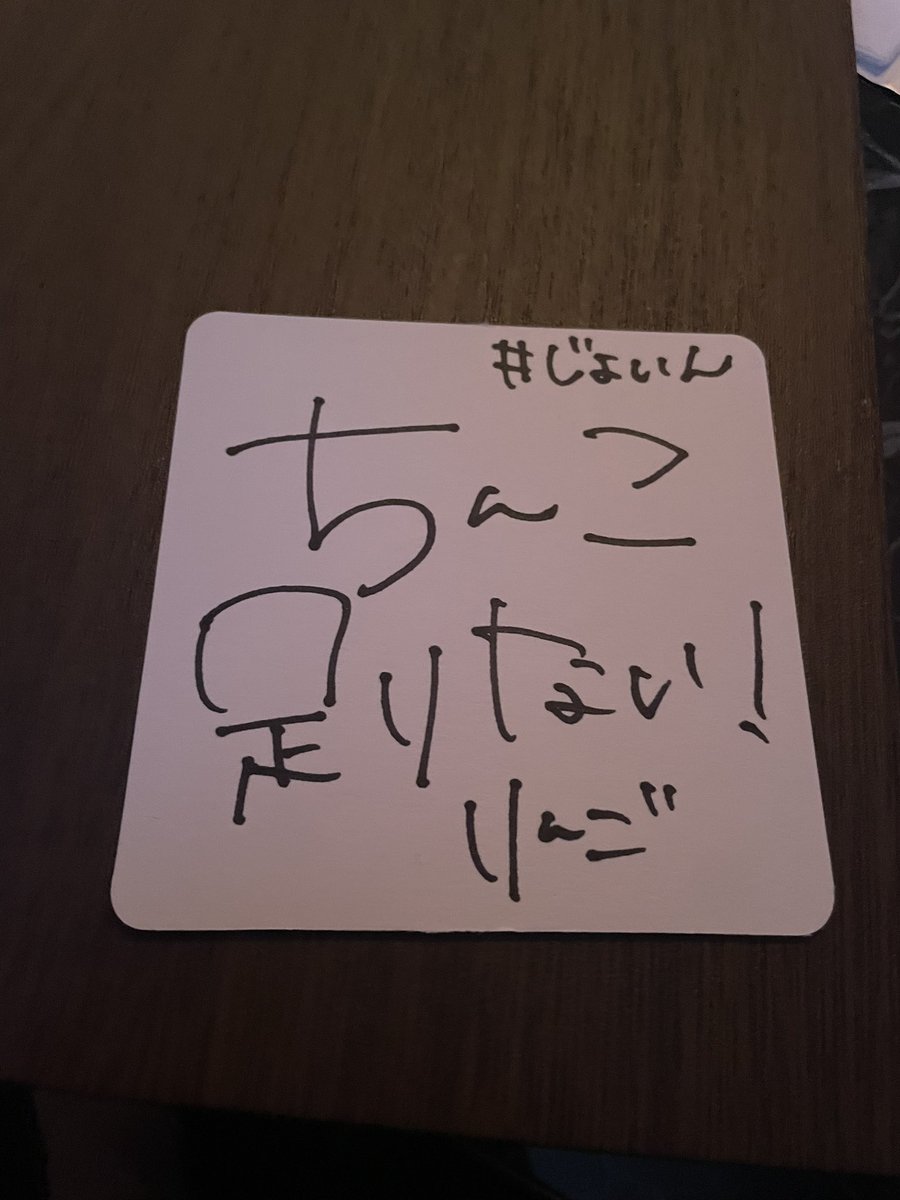 #じょいん
ちんこ
足りない!
りんご